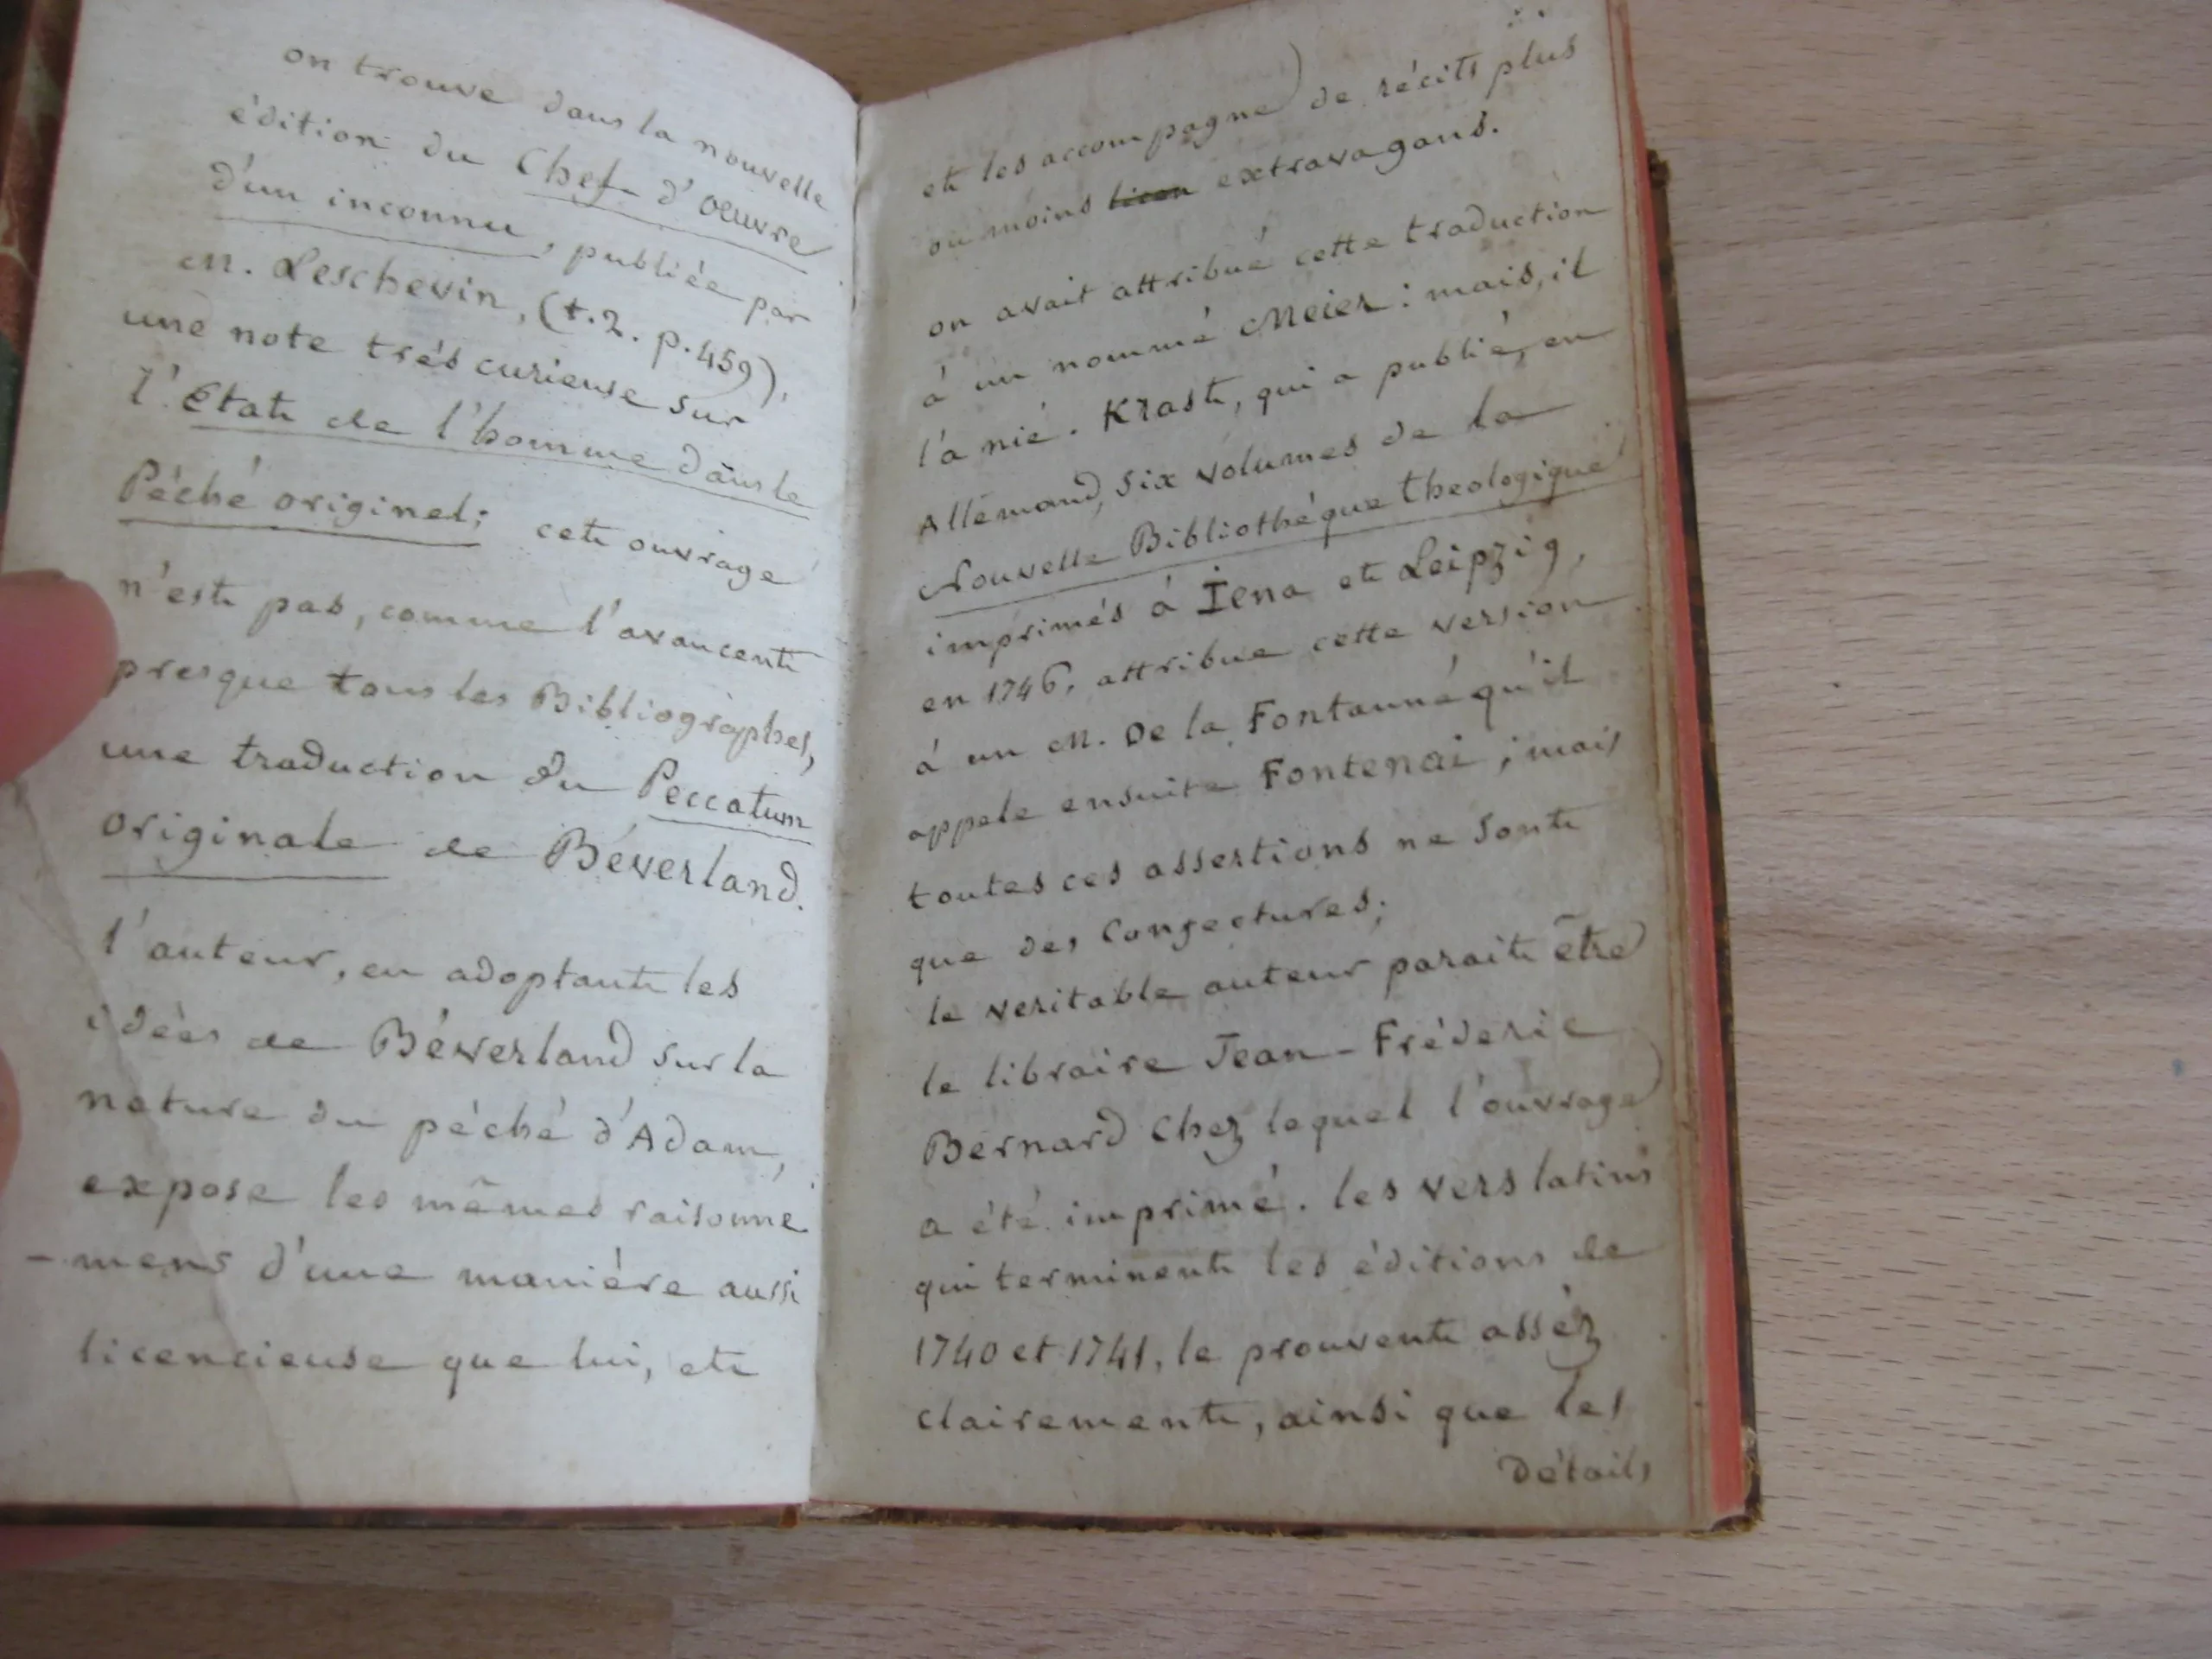 on trouve dans la nouvelle
édition du Chef d'oeuvre
d'un inconnu, publiée par
M. Leschevin, (t.2. p.459),
une note trés curieuse sur
l'Etat de l'homme dans le
Péché originel; cet ouvrage
n'est pas, comme l'avancent
presque tous les Bibliographes,
une traduction du Peccatum
originale de Béverland.
l'auteur, en adoptant les
idées de Béverland sur la
nature du péché d'Adam,
expose les mêmes raisonné
-mens d'une maniére aussi
licencieuse que lui, et
et les accompagne de récits plus
ou moins extravagans.
on avait attribué cette traduction
à un nommé Meier : mais, il
l'a nié. Krast, qui a publié, en
Allemand, six volumes de la
Nouvelle Bibliothéque theologique
imprimés à Iena et Leipzig,
en 1746, attribue cette version
à un M. De la Fontanné qu'il
appele ensuite Fontenai ; mais
toutes ces assertions ne sont
que des Congectures;
le veritable auteur parait être
le libraire Jean-Fréderic
Bernard Chez lequel l'ouvrage
a été imprimé. les vers latins
qui terminent les éditions de
1740 et 1741, le prouvent asséz
clairement, ainsi que les
Détails